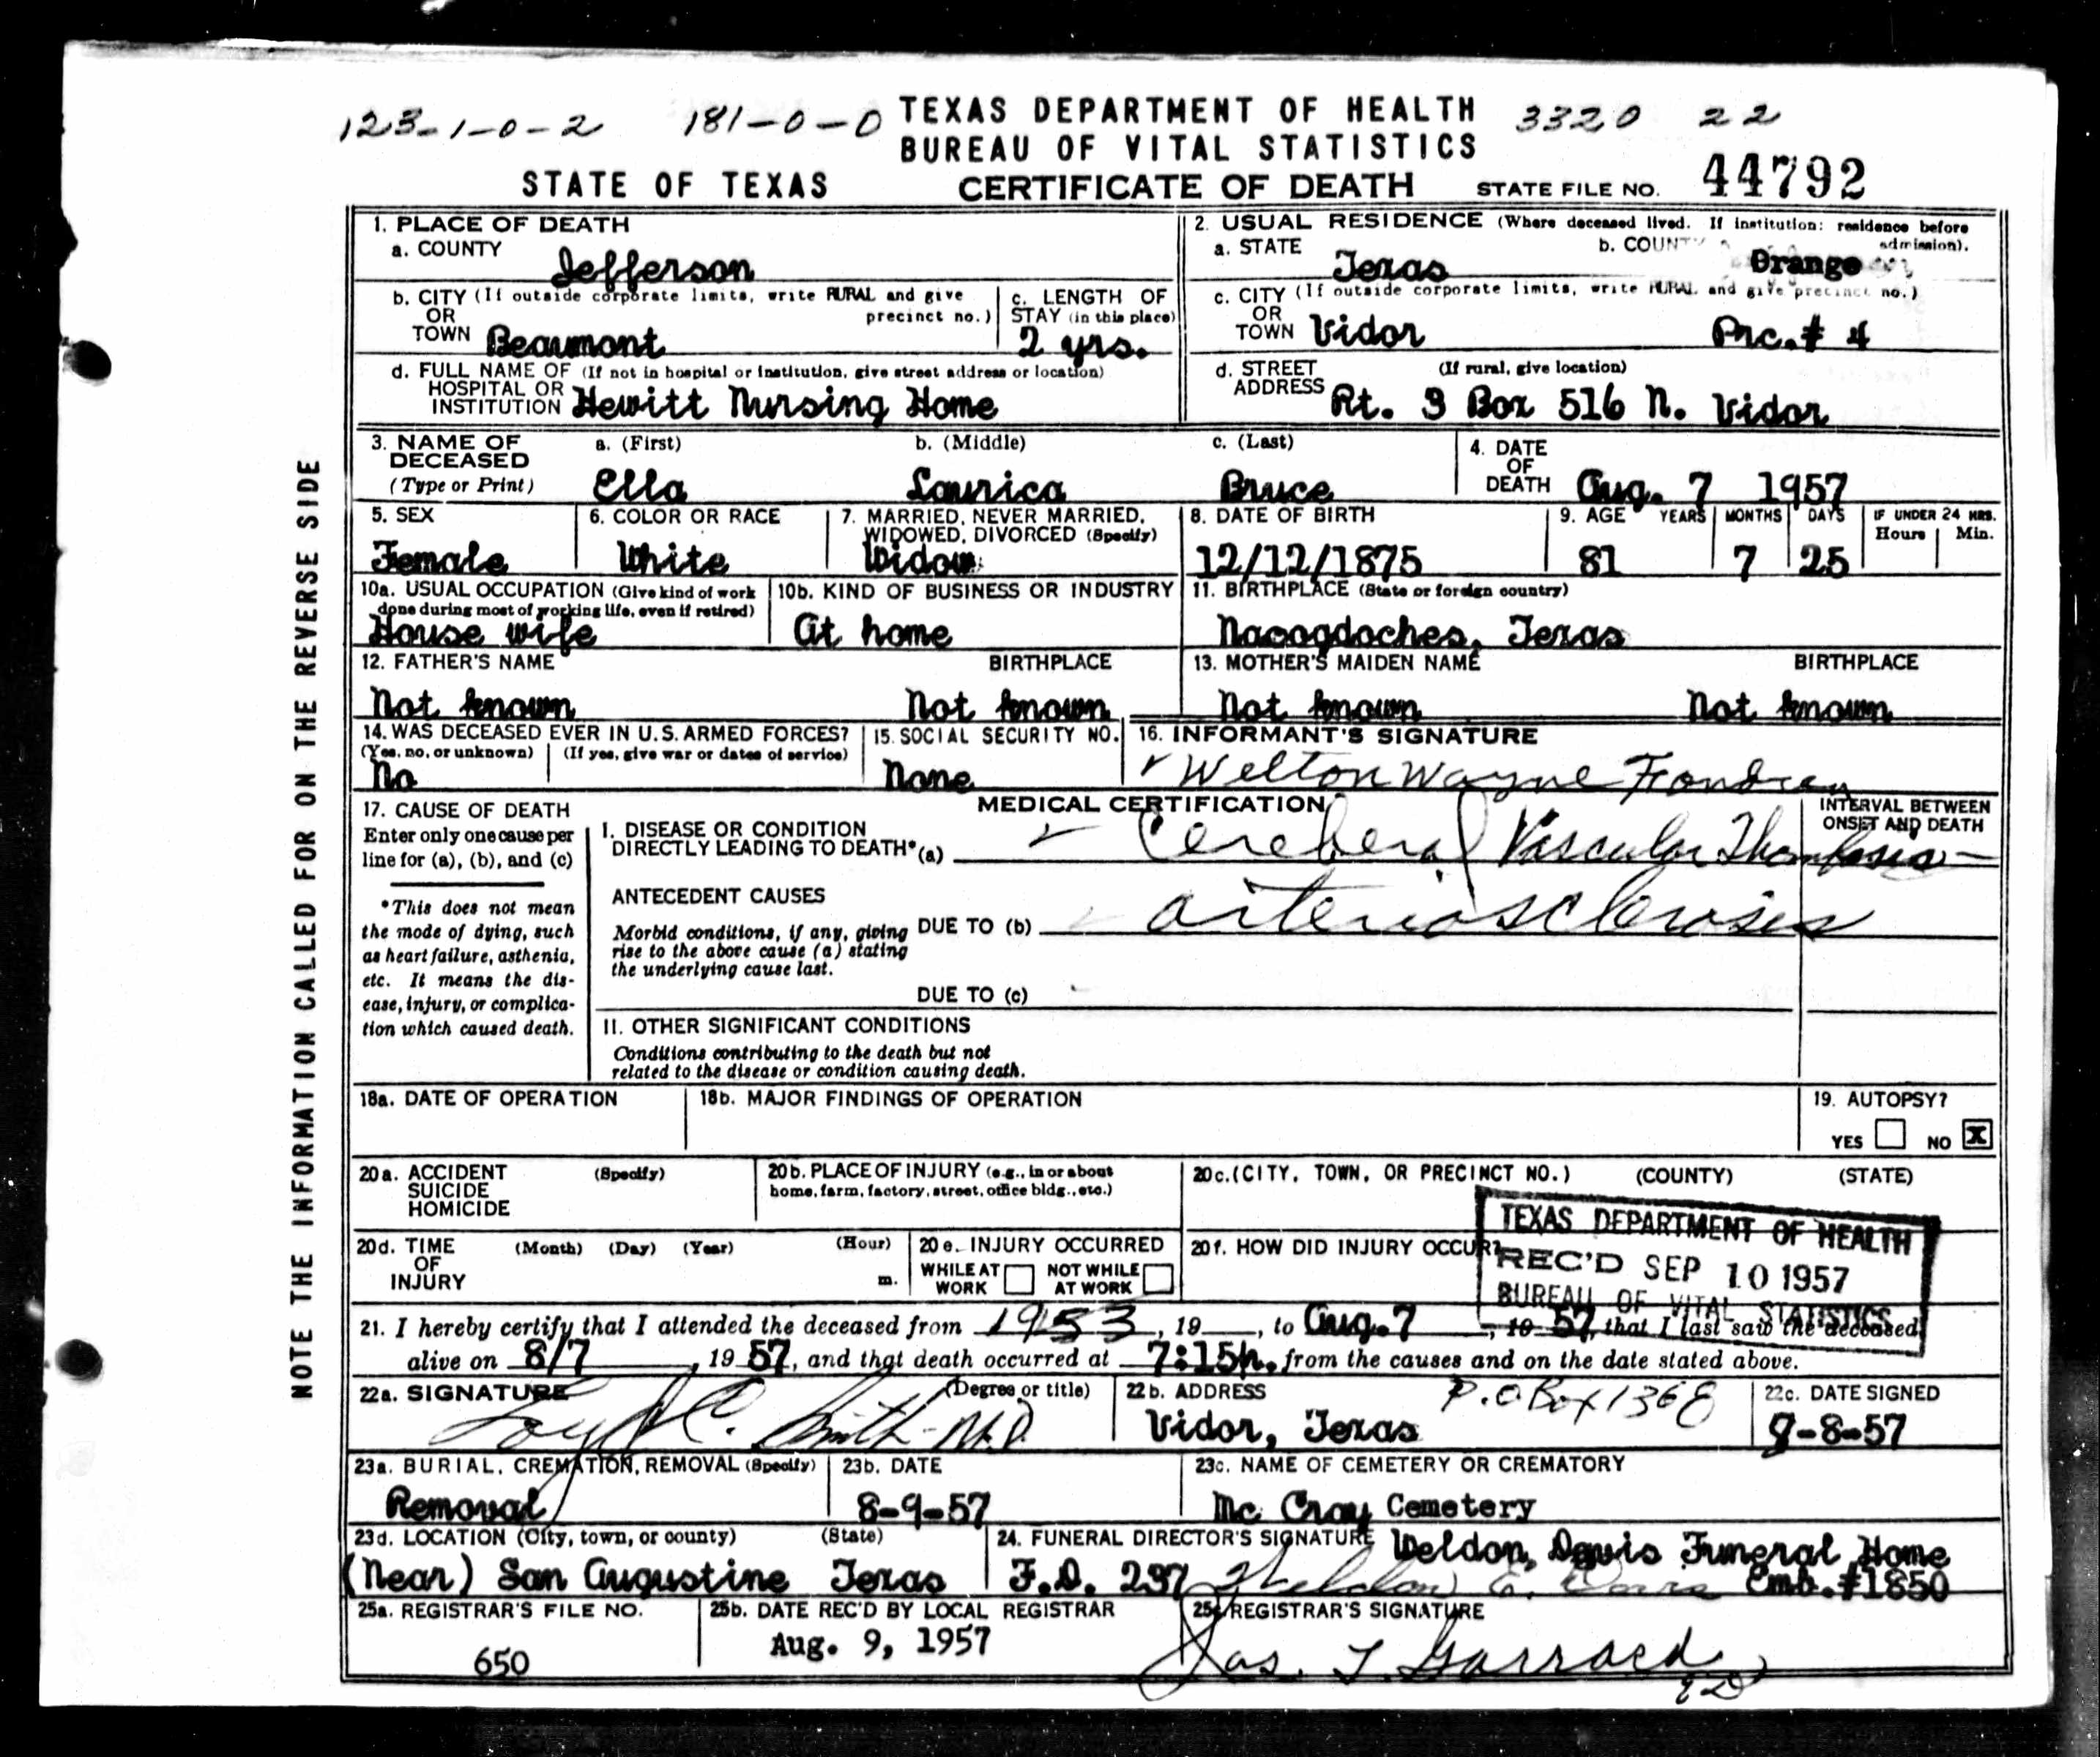 123-1-0-2 181-0-0 TEXAS DEPARTMENT OF HEALTH 3320 22
BUREAU OF VITAL STATISTICS
STATE OF TEXAS CERTIFICATE OF DEATH STATE FILE NO. 44792
NOTE THE INFORMATION CALLED FOR ON THE REVERSE SIDE
1. PLACE OF DEATH
a. COUNTY Jefferson
2. USUAL RESIDENCE (Where deceased lived. If institution: residence before admission).
a. STATE Texas b. COUNTY Orange
b. CITY (If outside corporate limits, write RURAL and give
OR precinct no.)
TOWN Beaumont
c. LENGTH OF
STAY (in this place)
2 yrs.
c. CITY (If outside corporate limits, write RURAL and give precinct no.)
OR
TOWN Vidor Prc.# 4
d. FULL NAME OF (If not in hospital or institution, give street address or location)
HOSPITAL OR
INSTITUTION Hewitt Nursing Home
d. STREET (If rural, give location)
ADDRESS Rt. 3 Box 516 N. Vidor
3. NAME OF a. (First) b. (Middle) c. (Last)
DECEASED
(Type or Print) Ella Laurica Bruce
4. DATE
OF
DEATH Aug. 7 1957
5. SEX
Female
6. COLOR OR RACE
White
7. MARRIED, NEVER MARRIED,
WIDOWED, DIVORCED (Specify)
Widow
8. DATE OF BIRTH
12/12/1875
9. AGE YEARS MONTHS DAYS IF UNDER 24 HRS.
Hours Min.
81 7 25
10a. USUAL OCCUPATION (Give kind of work
done during most of working life, even if retired)
House wife
10b. KIND OF BUSINESS OR INDUSTRY
At home
11. BIRTHPLACE (State or foreign country)
Nacogdoches, Texas
12. FATHER'S NAME BIRTHPLACE
Not known Not known
13. MOTHER'S MAIDEN NAME BIRTHPLACE
Not known Not known
14. WAS DECEASED EVER IN U.S. ARMED FORCES?
(Yes, no, or unknown) (If yes, give war or dates of service)
No
15. SOCIAL SECURITY NO.
None
16. INFORMANT'S SIGNATURE
Welton Wayne
17. CAUSE OF DEATH
Enter only one cause per
line for (a), (b), and (c)
*This does not mean
the mode of dying, such
as heart failure, asthenia,
etc. It means the dis-
ease, injury, or complica-
tion which caused death.
MEDICAL CERTIFICATION
INTERVAL BETWEEN
ONSET AND DEATH
I. DISEASE OR CONDITION
DIRECTLY LEADING TO DEATH*(a) Cerebral Vascular Thombosis
ANTECEDENT CAUSES
Morbid conditions, if any, giving
rise to the above cause (a) stating
the underlying cause last.
DUE TO (b) arteriosclerosis
DUE TO (c)
II. OTHER SIGNIFICANT CONDITIONS
Conditions contributing to the death but not
related to the disease or condition causing death.
18a. DATE OF OPERATION
18b. MAJOR FINDINGS OF OPERATION
19. AUTOPSY?
YES NO X
20a. ACCIDENT (Specify)
SUICIDE
HOMICIDE
20b. PLACE OF INJURY (e.g., in or about
home, farm, factory, street, office bldg., etc.)
20c. (CITY, TOWN, OR PRECINCT NO.) (COUNTY) (STATE)
20d. TIME (Month) (Day) (Year) (Hour)
OF
INJURY m.
20e. INJURY OCCURRED
WHILE AT NOT WHILE
WORK AT WORK
20f. HOW DID INJURY OCCUR?
TEXAS DEPARTMENT OF HEALTH
REC'D SEP 10 1957
BUREAU OF VITAL STATISTICS
21. I hereby certify that I attended the deceased from 1953, 19 , to Aug. 7, 19 57, that I last saw the deceased
alive on 8/7, 19 57, and that death occurred at 7:15 , from the causes and on the date stated above.
22a. SIGNATURE (Degree or title)
C. Smith M.D.
22b. ADDRESS P.O Box 1368
Vidor, Texas
22c. DATE SIGNED
-8-57
23a. BURIAL, CREMATION, REMOVAL (Specify)
Removal
23b. DATE
8-9-57
23c. NAME OF CEMETERY OR CREMATORY
Mc Cray Cemetery
23d. LOCATION (City, town, or county) (State)
(Near) San Augustine Texas
24. FUNERAL DIRECTOR'S SIGNATURE Weldon Davis Funeral Home
F.D. 297 Weldon E. Davis Emb.#1850
25a. REGISTRAR'S FILE NO.
650
25b. DATE REC'D BY LOCAL REGISTRAR
Aug. 9, 1957
25c. REGISTRAR'S SIGNATURE
Jas. T. Garrard